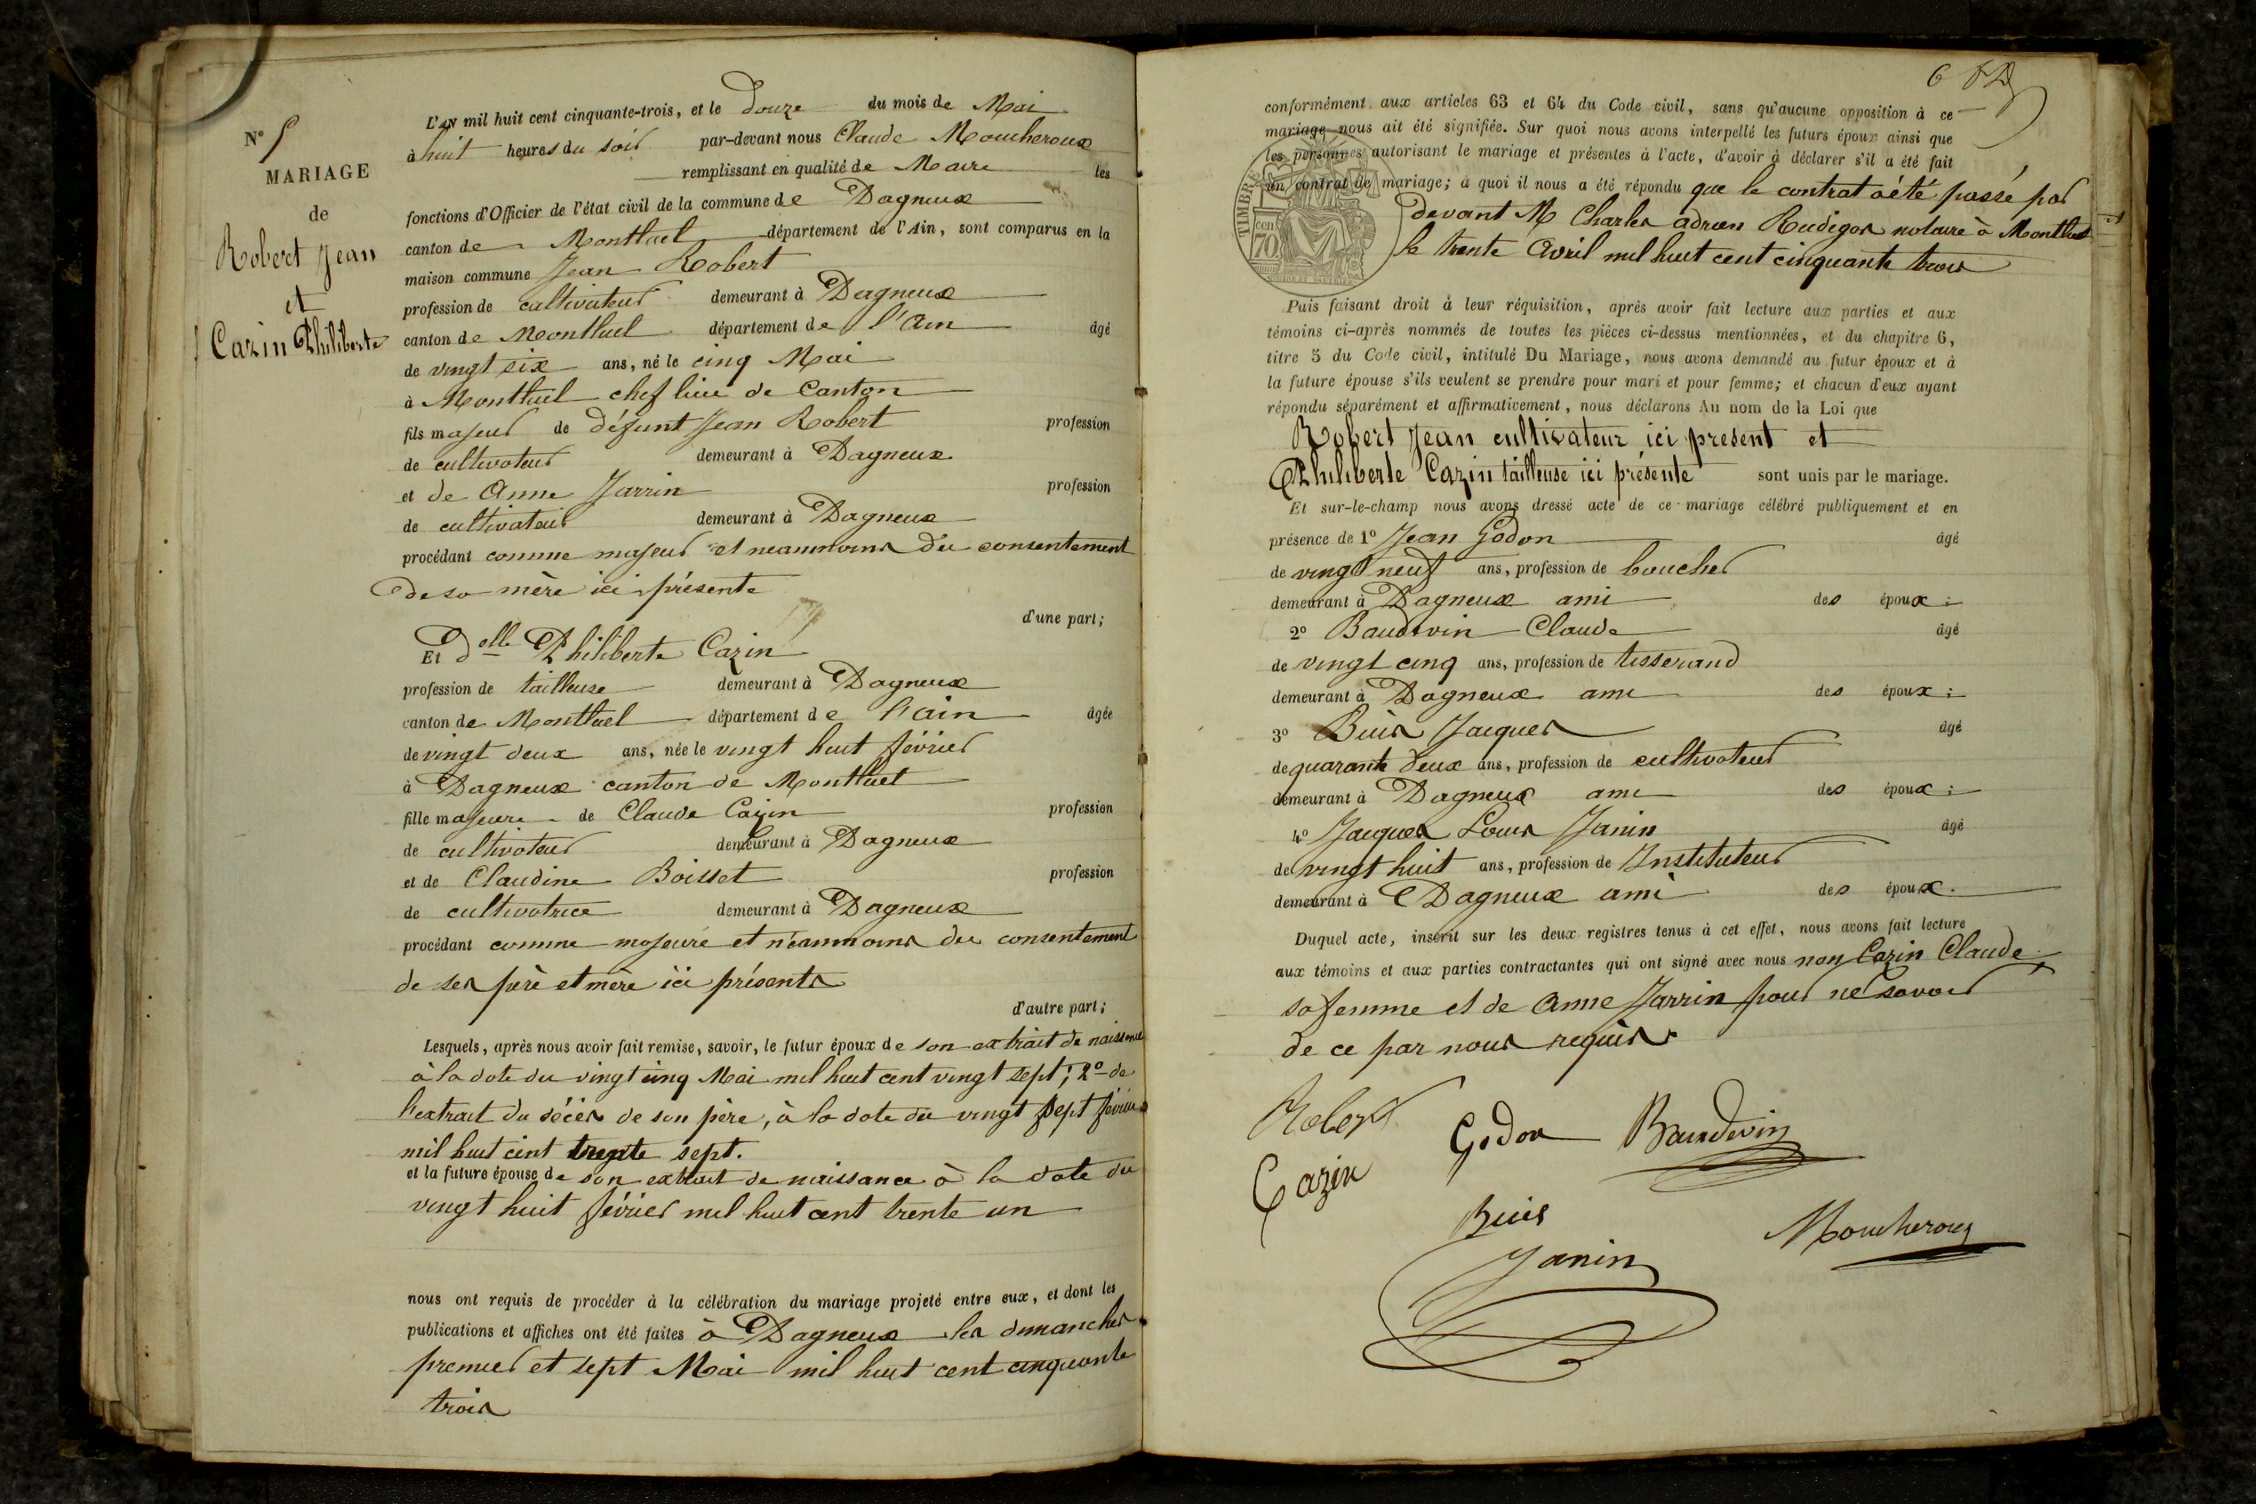 N° 5
MARIAGE
de
Robert Jean
et
Cazin Philiberte
L'AN mil huit cent cinquante-trois, et le Douze du mois de Mai
à huit heures du soir par-devant nous Claude Moucheroux
remplissant en qualité de Maire les
fonctions d'Officier de l'état civil de la commune de Dagneux
canton de Montluel département de l'Ain, sont comparus en la
maison commune Jean Robert
profession de cultivateur demeurant à Dagneux
canton de Montluel département de l'Ain âgé
de vingt six ans, né le cinq Mai
à Montluel chef lieu de Canton
fils majeur de défunt Jean Robert profession
de cultivateur demeurant à Dagneux
et de Anne Jarrin profession
de cultivateur demeurant à Dagneux
procédant comme majeur et néammoins du consentement
de sa mère ici présente
d'une part;
Et Delle Philiberte Cazin
profession de tailleuse demeurant à Dagneux
canton de Montluel département de l'ain âgée
de vingt deux ans, née le vingt huit février
à Dagneux canton de Montluel
fille majeure de Claude Cazin profession
de cultivateur demeurant à Dagneux
et de Claudine Boisset profession
de cultivatrice demeurant à Dagneux
procédant comme majeure et néammoins du consentement
de ses père et mère ici présents
d'autre part;
Lesquels, après nous avoir fait remise, savoir, le futur époux de son extrait de naissance
à la date du vingt cinq Mai mil huit cent vingt sept; 2° de
l'extrait du décès de son père, à la date du vingt sept février
mil huit cent trente sept.
et la future épouse de son extrait de naissance à la date du
vingt huit février mil huit cent trente un
nous ont requis de procéder à la célébration du mariage projeté entre eux, et dont les
publications et affiches ont été faites à Dagneux les dimanches
premier et sept Mai mil huit cent cinquante
trois
6
conformément aux articles 63 et 64 du Code civil, sans qu'aucune opposition à ce
mariage nous ait été signifiée. Sur quoi nous avons interpellé les futurs époux ainsi que
les personnes autorisant le mariage et présentes à l'acte, d'avoir à déclarer s'il a été fait
un contrat de mariage; à quoi il nous a été répondu que le contrat a été passé par
devant M Charles adrien Rudigoz notaire à Montluel
le trente Avril mil huit cent cinquante trois
TIMBRE
cen
70
Puis faisant droit à leur réquisition, après avoir fait lecture aux parties et aux
témoins ci-après nommés de toutes les pièces ci-dessus mentionnées, et du chapitre 6,
titre 5 du Code civil, intitulé Du Mariage, nous avons demandé au futur époux et à
la future épouse s'ils veulent se prendre pour mari et pour femme; et chacun d'eux ayant
répondu séparément et affirmativement, nous déclarons Au nom de la Loi que
Robert Jean cultivateur ici present et
Philiberte Cazin tailleuse ici présente sont unis par le mariage.
Et sur-le-champ nous avons dressé acte de ce mariage célébré publiquement et en
présence de 1° Jean Godon âgé
de vingt neuf ans, profession de boucher
demeurant à Dagneux ami des époux;
2° Baudevin Claude âgé
de vingt cinq ans, profession de tisserand
demeurant à Dagneux ami des époux;
3° Buis Jacques âgé
de quarante deux ans, profession de cultivateur
demeurant à Dagneux ami des époux;
4° Jacques Louis Janin âgé
de vingt huit ans, profession de Instituteur
demeurant à Dagneux ami des époux.
Duquel acte, inscrit sur les deux registres tenus à cet effet, nous avons fait lecture
aux témoins et aux parties contractantes qui ont signé avec nous non Cazin Claude
sa femme et de Anne Jarrin pour ne savoir
de ce par nous requis.
Robert
Godon
Baudevin
Cazin
Buis
Moucheroux
Janin